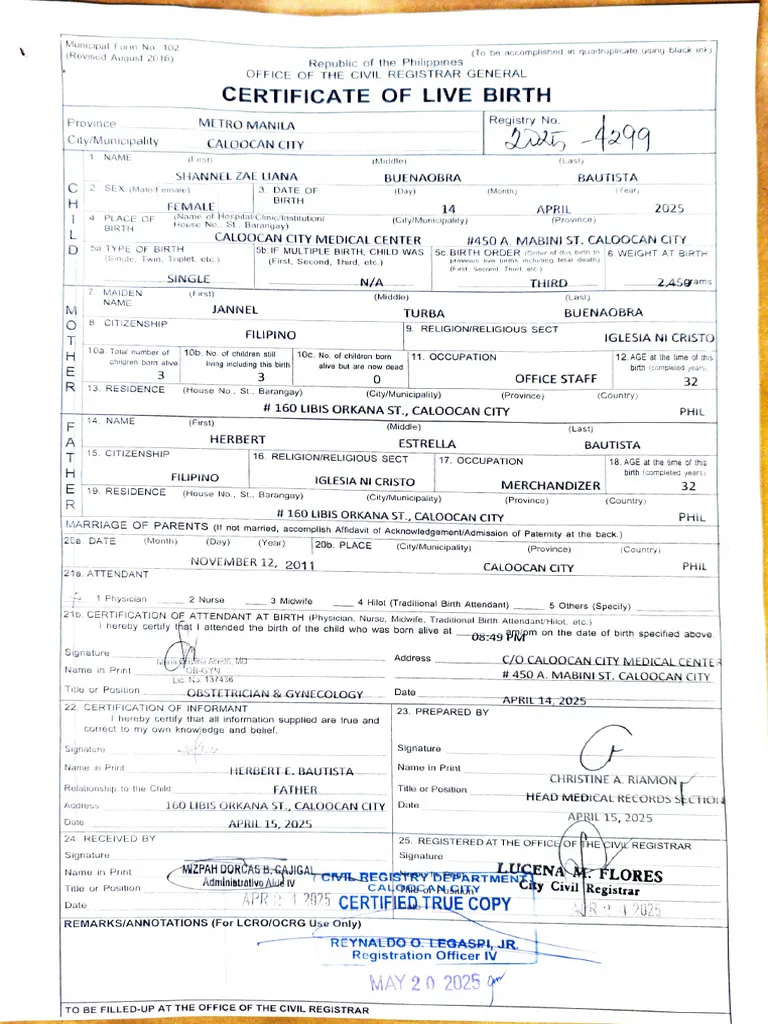 Municipal Form No. 102
(Revised August 2016)
(To be accomplished in quadruplicate using black ink)
Republic of the Philippines
OFFICE OF THE CIVIL REGISTRAR GENERAL
CERTIFICATE OF LIVE BIRTH
Province METRO MANILA
Registry No.
2025 -4299
City/Municipality CALOOCAN CITY
CHILD
1. NAME (First) (Middle) (Last)
SHANNEL ZAE LIANA BUENAOBRA BAUTISTA
2. SEX (Male/Female) 3. DATE OF BIRTH (Day) (Month) (Year)
FEMALE 14 APRIL 2025
4. PLACE OF BIRTH (Name of Hospital/Clinic/Institution/ House No., St., Barangay) (City/Municipality) (Province)
CALOOCAN CITY MEDICAL CENTER #450 A. MABINI ST. CALOOCAN CITY
5a. TYPE OF BIRTH (Single, Twin, Triplet, etc.) 5b. IF MULTIPLE BIRTH, CHILD WAS (First, Second, Third, etc.) 5c. BIRTH ORDER (Order of this birth to previous live births including fetal death) (First, Second, Third, etc.) 6. WEIGHT AT BIRTH
SINGLE N/A THIRD 2,450 grams
MOTHER
7. MAIDEN NAME (First) (Middle) (Last)
JANNEL TURBA BUENAOBRA
8. CITIZENSHIP 9. RELIGION/RELIGIOUS SECT
FILIPINO IGLESIA NI CRISTO
10a. Total number of children born alive 10b. No. of children still living including this birth 10c. No. of children born alive but are now dead 11. OCCUPATION 12. AGE at the time of this birth (completed years)
3 3 0 OFFICE STAFF 32
13. RESIDENCE (House No., St., Barangay) (City/Municipality) (Province) (Country)
# 160 LIBIS ORKANA ST., CALOOCAN CITY PHIL
FATHER
14. NAME (First) (Middle) (Last)
HERBERT ESTRELLA BAUTISTA
15. CITIZENSHIP 16. RELIGION/RELIGIOUS SECT 17. OCCUPATION 18. AGE at the time of this birth (completed years)
FILIPINO IGLESIA NI CRISTO MERCHANDIZER 32
19. RESIDENCE (House No., St., Barangay) (City/Municipality) (Province) (Country)
# 160 LIBIS ORKANA ST., CALOOCAN CITY PHIL
MARRIAGE OF PARENTS (If not married, accomplish Affidavit of Acknowledgement/Admission of Paternity at the back.)
20a. DATE (Month) (Day) (Year) 20b. PLACE (City/Municipality) (Province) (Country)
NOVEMBER 12, 2011 CALOOCAN CITY PHIL
21a. ATTENDANT
1 Physician 2 Nurse 3 Midwife 4 Hilot (Traditional Birth Attendant) 5 Others (Specify)
21b. CERTIFICATION OF ATTENDANT AT BIRTH (Physician, Nurse, Midwife, Traditional Birth Attendant/Hilot, etc.)
I hereby certify that I attended the birth of the child who was born alive at 08:49 PM am/pm on the date of birth specified above.
Signature
Address C/O CALOOCAN CITY MEDICAL CENTER
MD
Name in Print OB-GYN
# 450 A. MABINI ST. CALOOCAN CITY
Lic. No. 137436
Title or Position OBSTETRICIAN & GYNECOLOGY
Date APRIL 14, 2025
22. CERTIFICATION OF INFORMANT
I hereby certify that all information supplied are true and
correct to my own knowledge and belief.
Signature
Name in Print HERBERT E. BAUTISTA
Relationship to the Child FATHER
Address 160 LIBIS ORKANA ST., CALOOCAN CITY
Date APRIL 15, 2025
23. PREPARED BY
Signature
Name in Print CHRISTINE A. RIAMON
Title or Position HEAD MEDICAL RECORDS SECTION
Date APRIL 15, 2025
24. RECEIVED BY
Signature
Name in Print MIZPAH DORCAS B. CAJIGAL
Title or Position Administrative Aide IV
Date APR 24 2025
25. REGISTERED AT THE OFFICE OF THE CIVIL REGISTRAR
Signature
LUCENA M. FLORES
City Civil Registrar
APR 24 2025
CIVIL REGISTRY DEPARTMENT
CALOOCAN CITY
CERTIFIED TRUE COPY
REMARKS/ANNOTATIONS (For LCRO/OCRG Use Only)
REYNALDO O. LEGASPI, JR.
Registration Officer IV
MAY 20 2025
TO BE FILLED-UP AT THE OFFICE OF THE CIVIL REGISTRAR